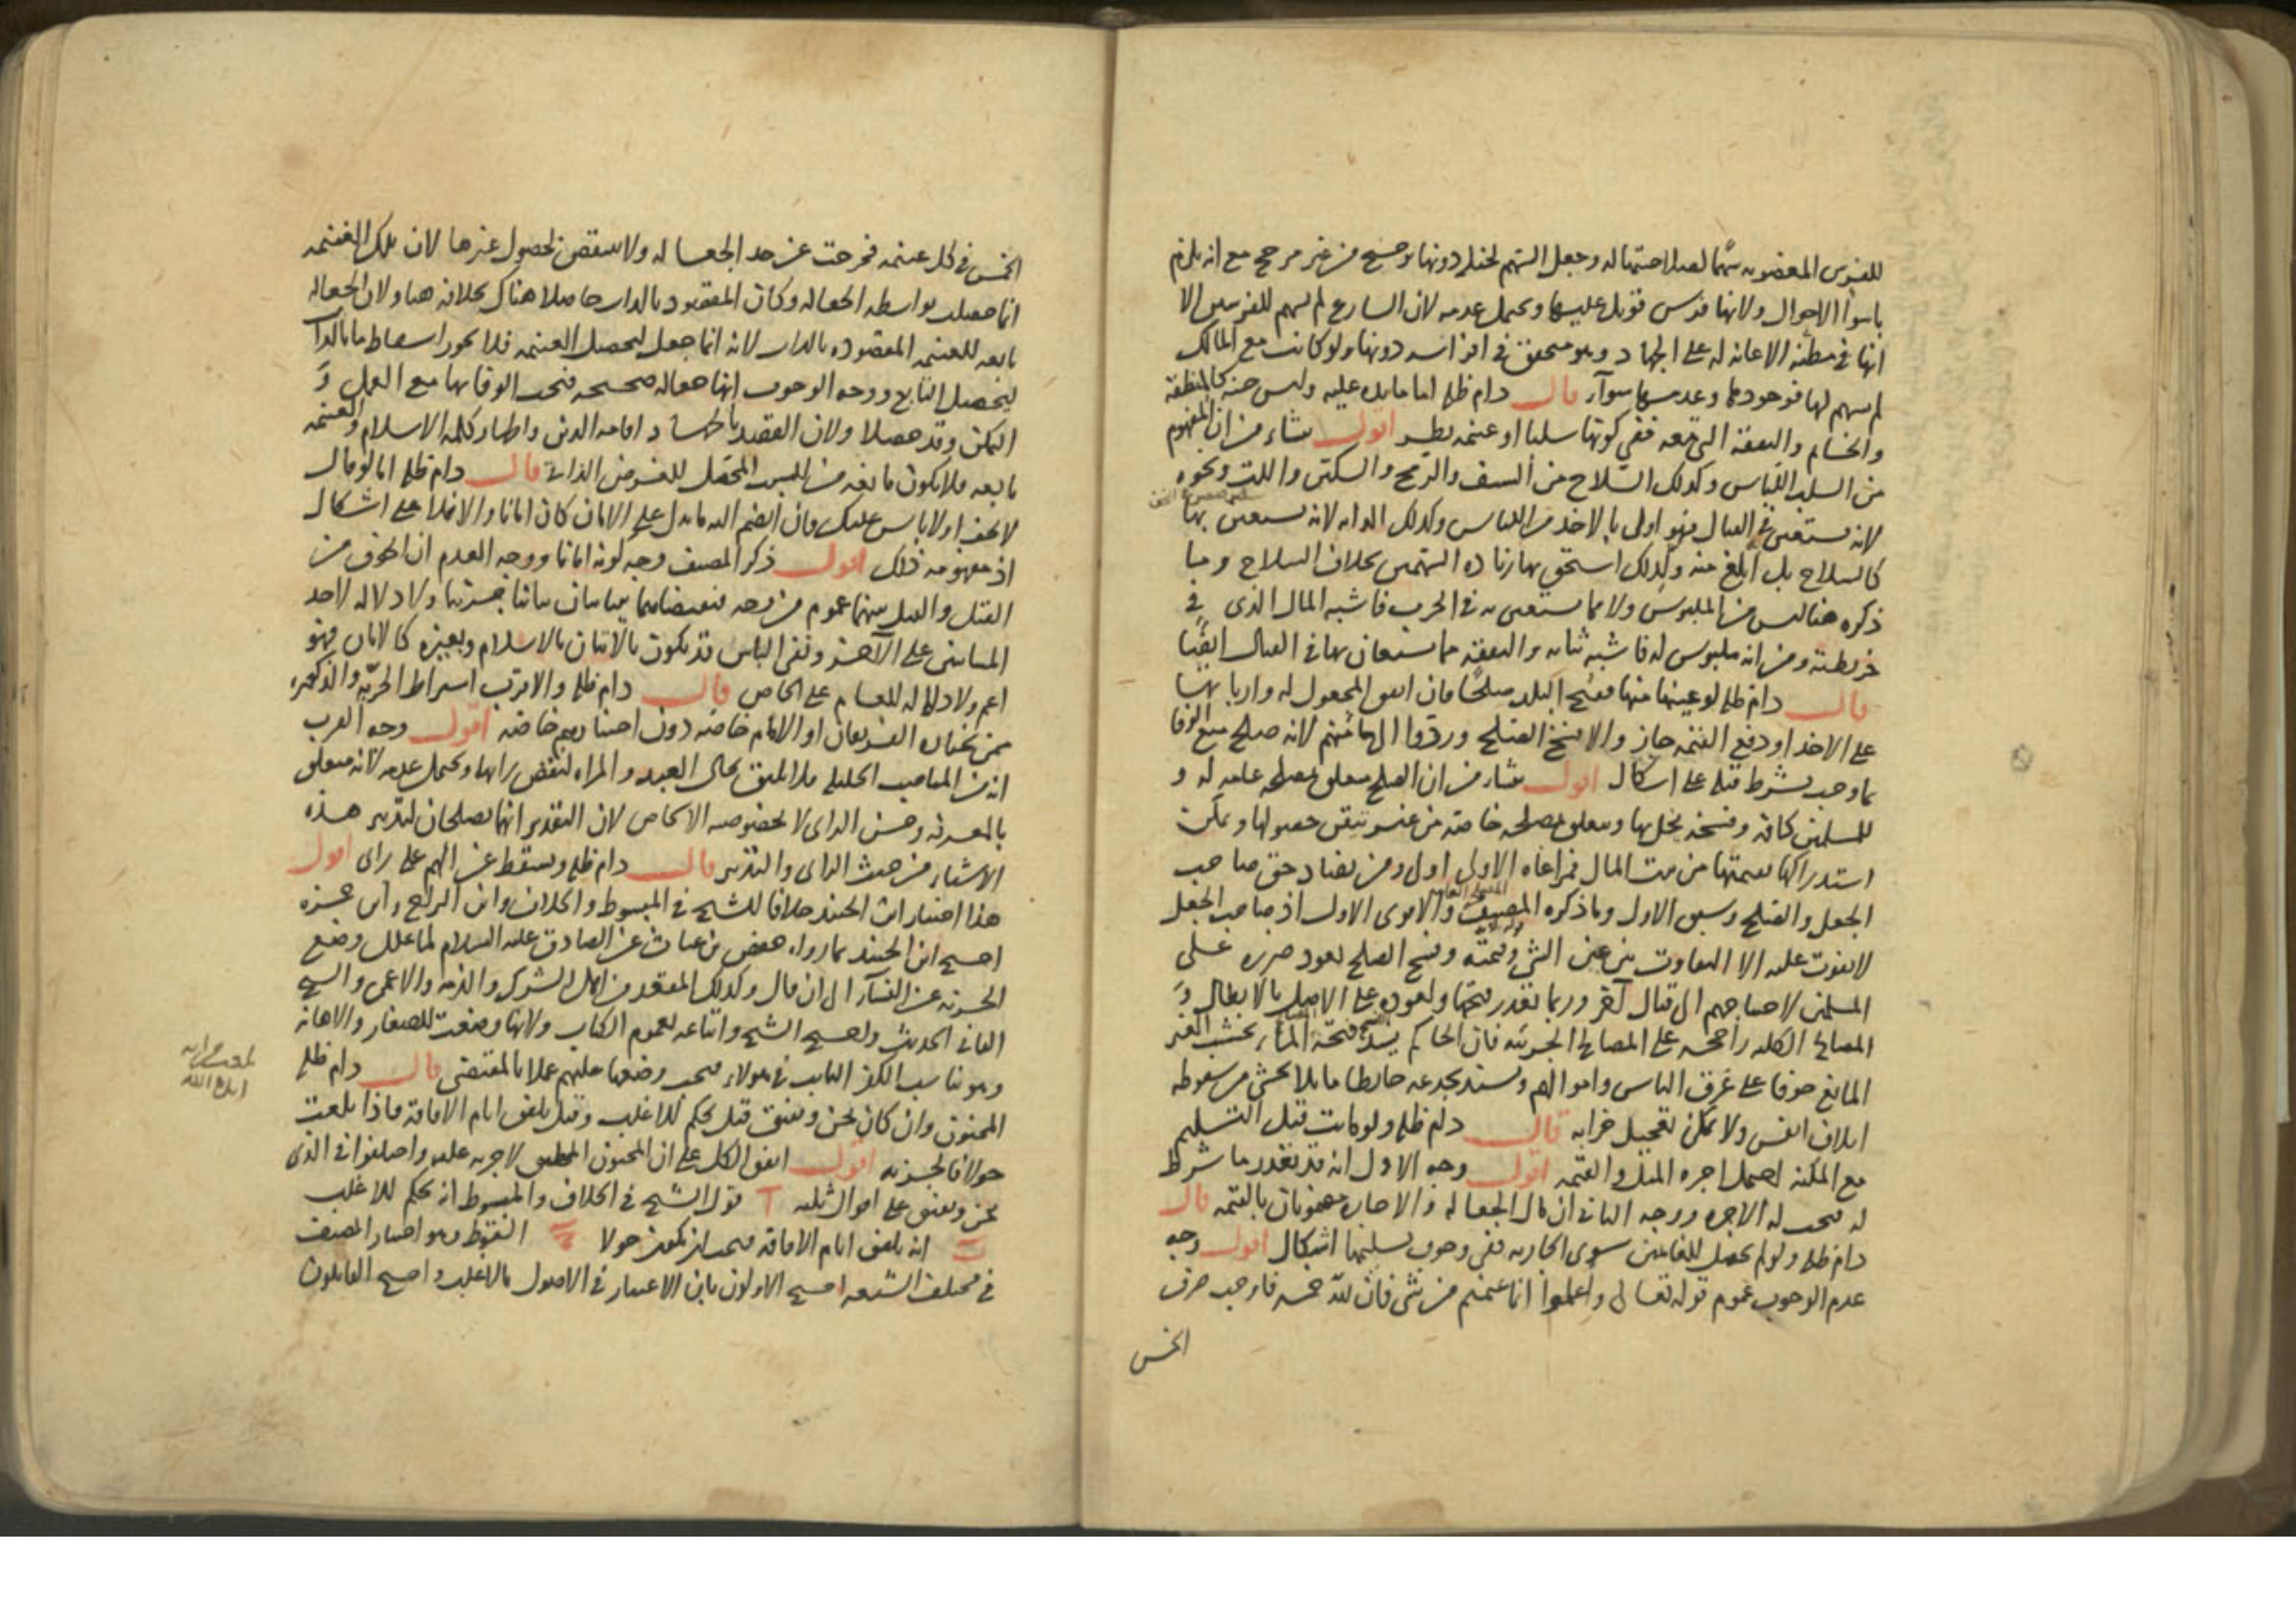 للفرس المغصوبه سهما لعدم احتماله وجعل السهم لخيل دونها ترجيح من غير مرجح مع انه يلزم
باسوأ الاحوال ولانها فرس قوتل عليها ويحتمل عدمه لان الشارع لم يسهم للفرس الا
انها في مظنه الاعانه له على الجهاد وهو متحقق في افراسه دونها ولو كانت مع المالك
لم يسهم لها فوجودها وعدمها سوآء قال دام ظله اما ما يده عليه وليس جنه كالمنطقة
والخاتم والنفقة التي معه ففي كونها سلبا او غنيمه نظر اقول ينشاء من ان المفهوم
من السلب اللباس وكذلك السلاح من السيف والرمح والسكين واللت ونحوه
لانه يستعين في القتال فهو اولى بالاخذ من اللباس وكذلك الدابه لانه يستعين بها
كالسلاح بل ابلغ منه ولذلك استحق بها زياده السهمين بخلاف السلاح وما
ذكره هنا ليس من الملبوس ولا مما يستعين به في الحرب فاشبه المال الذى في
خريطته ومن انه ملبوس له فاشبه ثيابه والنفقه مما يستعان بها في القتال ايضا
قال دام ظله لو عينها منها ففتح البلد صلحا فان اتفق المجعول له واربابها
على الاخذ او دفع القيمه جاز والا فسخ الصلح وردوا الى مأمنهم لانه صلح منع الوفا
بما وجب بشرط قبله على اشكال اقول ينشأ من ان الصلح يتعلق بمصلحه عامه له و
للمسلمين كافة وفسخه يخل بها ويتعلق بمصلحه خاصه من غير تيقن حصولها ويمكن
استدراكها بقيمتها من بيت المال فمراعاه الاولى اولى ومن تضاد حق صاحب
الجعل والصلح وسبق الاول وما ذكره المصنف والاقوى الاول اذ صاحب الجعل
لا يفوت عليه الا التفاوت بين عين الشئ وقيمته وفسخ الصلح يعود ضرره على
المسلمين لاحتياجهم الى قتال آخر وربما تعذر فتحها ولعوده على الاصل بالابطال و
المصالح الكليه راجحه على المصالح الجزئيه فان الحاكم يسد فتحة الماء بخشب الغير
المانع خوفا على غرق الناس واموالهم ويسند بجذعه حايطا مايلا يخشى من سقوطه
اتلاف انفس ولا يمكن تعجيل خرابه قال دام ظله ولو ماتت قبل التسليم
مع المكنه احتمل اجره المثل والقيمه اقول وجه الاول انه قد تعذر ما شرط
له فتجب له الاجره ووجه الثاني ان مال الجعاله والاجاره مضمونان بالقيمه قال
دام ظله ولو لم يحصل للغانمين سوى الجاريه ففي وجوب تسليمها اشكال اقول وجه
عدم الوجوب عموم قوله تعالى واعلموا انما غنمتم من شئ فان لله خمسه فاوجب صرف
الخمس
الخمس في كل غنيمه فخرجت عن حد الجعاله ولا ينتقض بحصول غيرها لان تلك الغنيمه
انما حصلت بواسطه الجعاله وكان المقصود بالذات حاصلا هناك بخلافه هنا ولان الجعاله
تابعه للغنيمه المقصوده بالذات لانه انما جعل ليحصل الغنيمه فلا يجوز اسقاط ما بالذات
ليحصل التابع ووجه الوجوب انها جعاله صحيحه فتجب الوفا بها مع العمل و
التمكن وقد حصلا ولان القصد بالجهاد اقامه الدين واظهار كلمه الاسلام والغنيمه
تابعه فلا يكون مانعه من السبب المحصل للغرض الذاتي قال دام ظله اما لو قال
لا تخف او لا باس عليك فان انضم اليه ما يدل على الامان كان امانا والا فلا على اشكال
اذ مفهومه ذلك اقول ذكر المصنف وجه كونه امانا ووجه العدم ان الخوف من
القتل والقتل بينهما عموم من وجه فنقيضاهما يتباينان تباينا جزئيا ولا دلاله لاحد
المتباينين على الآخر ونفي الباس قد يكون بالاتيان بالاسلام وبغيره كالامان فهو
اعم ولا دلاله للعام على الخاص قال دام ظله والاقرب اشتراط الحريه والذكوره
فمن يختاره الفريقان او الامام خاصه دون اختيارهم خاصه اقول وجه القرب
انه من المناصب الجليله فلا يليق بحال العبد والمراه لنقص رايها ويحتمل عدمه لانه متعلق
بالمعرفه وحسن الراى لا بخصوصيه الاشخاص لان التقدير انهما يصلحان لتدبير هذه
الاشياء من حيث الراى والتدبير قال دام ظله ويسقط عن الهم على راى اقول
هذا اختيار ابن الجنيد خلافا للشيخ في المبسوط والخلاف وابن البراج وابن حمزه
احتج ابن الجنيد بما رواه حفص بن غياث عن الصادق عليه السلام لما علل وضع
الجزيه عن النسآء الى ان قال وكذلك المقعد من اهل الشرك والذمه والاعمى والشيخ
الفاني الحديث واحتج الشيخ واتباعه بعموم الكتاب ولانها وضعت للصغار والاهانه
وهو يناسب الكفر الثابت في هولاء فتجب وضعها عليهم عملا بالمقتضى قال دام ظله
المجنون وان كان يجن ويفيق قيل يحكم للاغلب وقيل يلفق ايام الافاقة فاذا بلغت
حولا فالجزيه اقول اتفق الكل على ان المجنون المطبق لا جزيه عليه واختلفوا في الذى
يجن ويفيق على اقوال ثلثه آ قول الشيخ في الخلاف والمبسوط انه يحكم للاغلب
ب انه يلفق ايام الافاقه فتجب ان يكون حولا ج السقوط وهو اختيار المصنف
في مختلف الشيعه احتج الاولون بان الاعتبار في الاصول بالاغلب واحتج القايلون
ايده الله